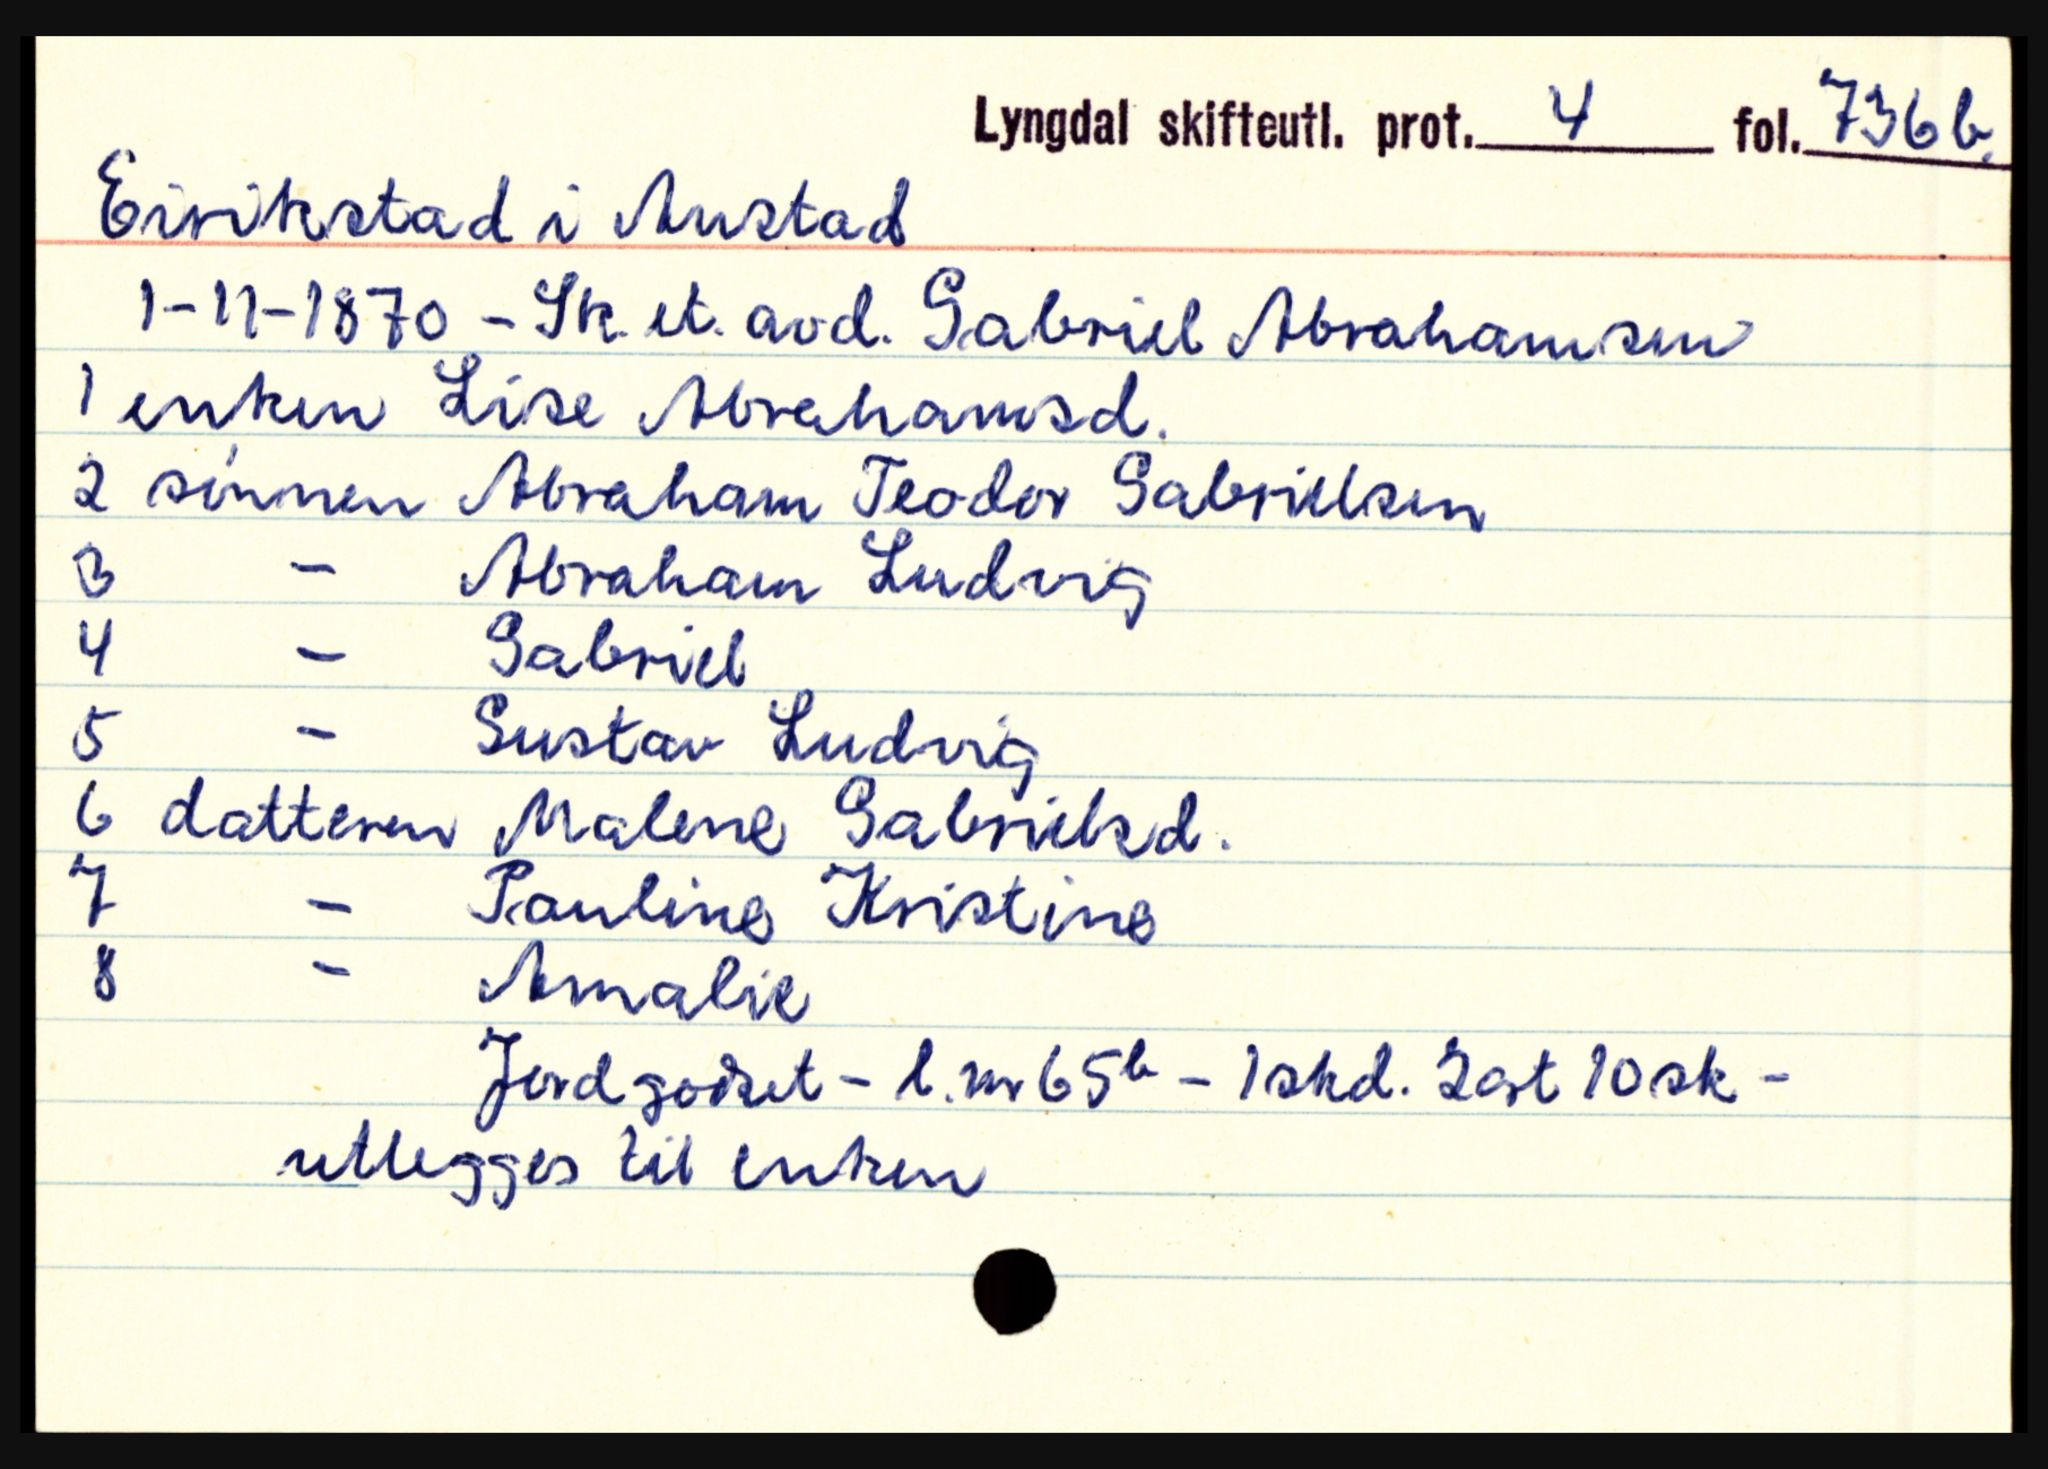 Lyngdal skifteutl. prot. 4 fol. 736b.
Eirikstad i Austad
1-11-1870 - Sk. et. avd. Gabriel Abrahamsen
1 enken Lise Abrahamsd.
2 sönnen Abraham Teodor Gabrielsen
3 - Abraham Ludvig
4 - Gabriel
5 - Gustav Ludvig
6 datteren Malene Gabrielsd.
7 - Pauline Kristine
8 - Amalie
Jordgodset - l.nr 65b - 1 skd. 2 ort 10 sk -
utlegges til enken